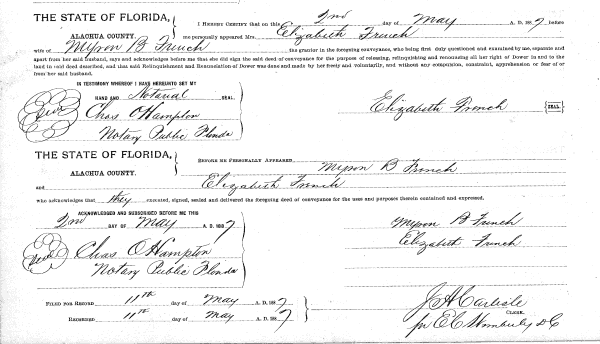 THE STATE OF FLORIDA, I HEREBY CERTIFY that on this 2nd day of May A. D. 1887 before
ALACHUA COUNTY. me personally appeared Mrs. Elizabeth French
wife of Myron B French the grantor in the foregoing conveyance, who being first duly questioned and examined by me, separate and
apart from her said husband, says and acknowledges before me that she did sign the said deed of conveyance for the purpose of releasing, relinquishing and renouncing all her right of Dower in and to the
land in said deed described, and that said Relinquishment and Renunciation of Dower was done and made by her freely and voluntarily, and without any compulsion, constraint, apprehension or fear of or
from her said husband.
IN TESTIMONY WHEREOF I HAVE HEREUNTO SET MY
HAND AND Notarial SEAL.
Seal
Chas O Hampton
Notary Public Florida
Elizabeth French SEAL.
THE STATE OF FLORIDA,
ALACHUA COUNTY. BEFORE ME PERSONALLY APPEARED Myron B French
and Elizabeth French
who acknowledges that they executed, signed, sealed and delivered the foregoing deed of conveyance for the uses and purposes therein contained and expressed.
ACKNOWLEDGED AND SUBSCRIBED BEFORE ME THIS
2nd DAY OF May A. D. 1887
Seal
Chas O Hampton
Notary Public Florida
Myron B French
Elizabeth French
FILED FOR RECORD 11th day of May A. D. 1887
RECORDED 11th day of May A. D. 1887
J A Carlisle
CLERK.
pr E C Wimberly D C